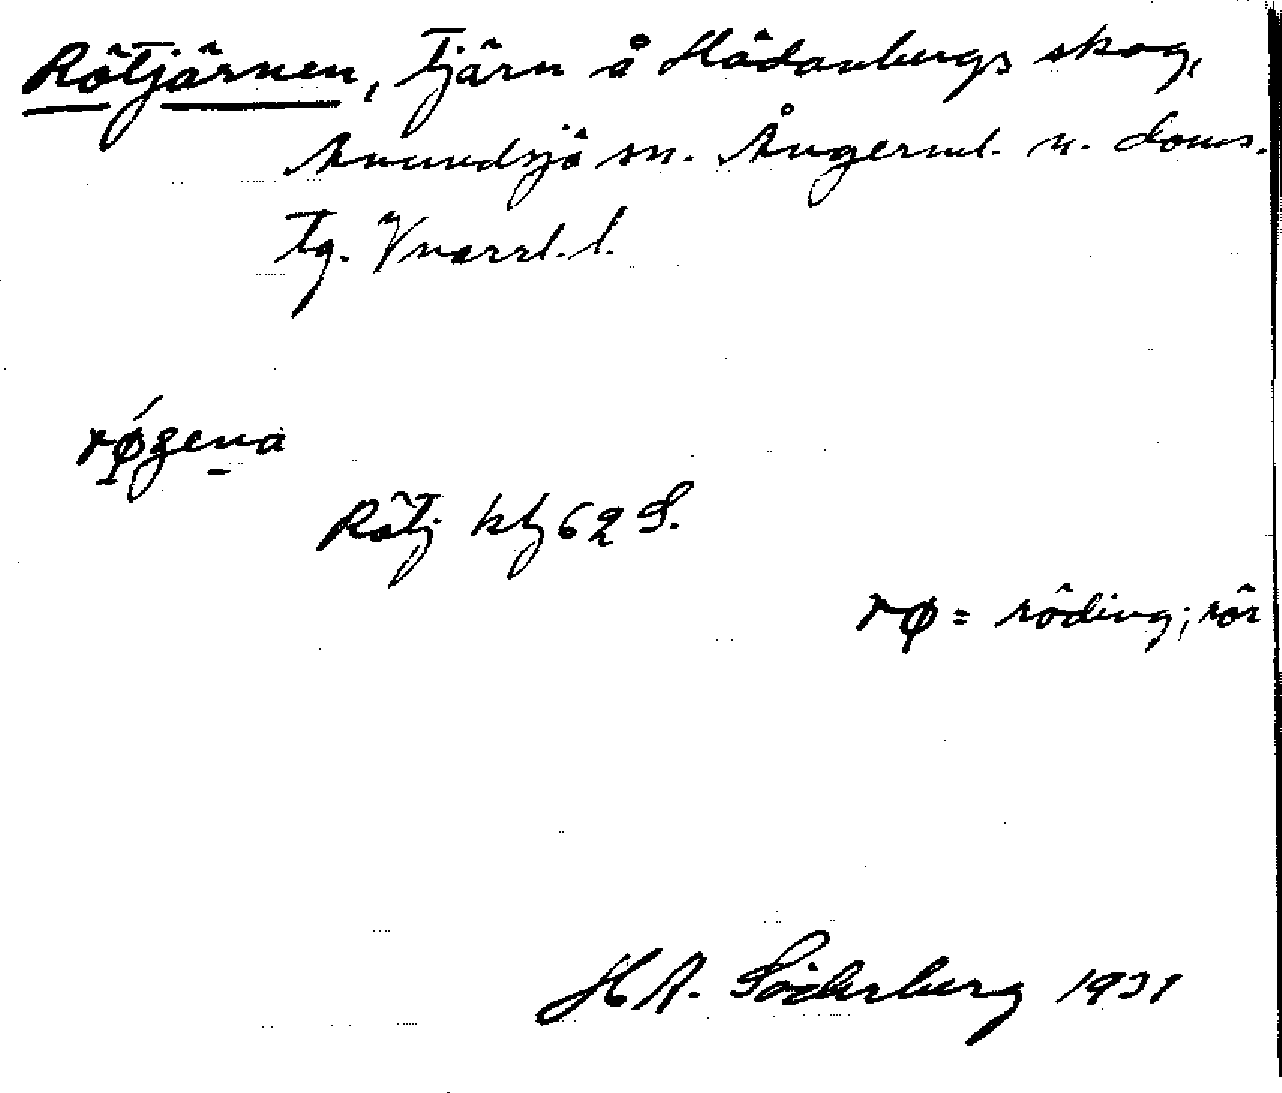 Rötjärnen, Tjärn å Hädanbergs skog,
Anundsjö sn. Ångerml. n. doms.
Tg. Vnorrl. l.
røgena
Rötj kbl 62 S.
rø = röding; rör
H A. Söderberg 1931